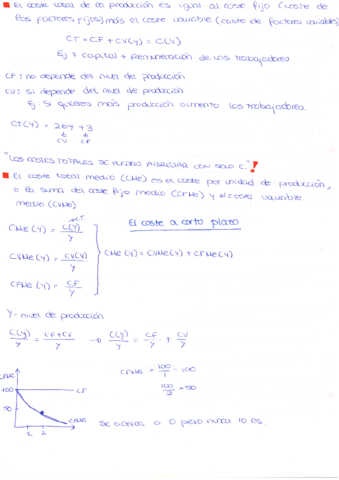 ■ El coste total de la producción es igual al coste fijo (coste de
los factores fijos) más el coste variable (coste de factores variables)
CT = CF + CV(Y) = C(Y)
Ej = capital + Remuneración de los trabajadores
CF: no depende del nivel de producción
CV: si depende del nivel de producción
Ej: Si quieres más producción aumento los trabajadores.
CT(Y) = 20Y + 3
CV CF
"LOS COSTES TOTALES SE PUEDEN ABREVIAR CON SOLO C."!
■ El coste total medio (CMe) es el coste por unidad de producción,
o la suma del coste fijo medio (CFMe) y el coste variable
medio (CVMe)
El coste a corto plazo
CT
CMe(Y) = C(Y)/Y
CVMe(Y) = CV(Y)/Y
CFMe(Y) = CF/Y
CMe(Y) = CVMe(Y) + CFMe(Y)
Y = nivel de producción
C(Y)/Y = CF+CV/Y → C(Y)/Y = CF/Y + CV/Y
CFMe = 100/1 = 100
100/2 = 50
100
CF
50
CFMe
1 2
Se acerca a 0 pero nunca lo es.